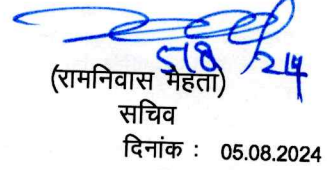 5/8/24
(रामनिवास मेहता)
सचिव
दिनांक : 05.08.2024